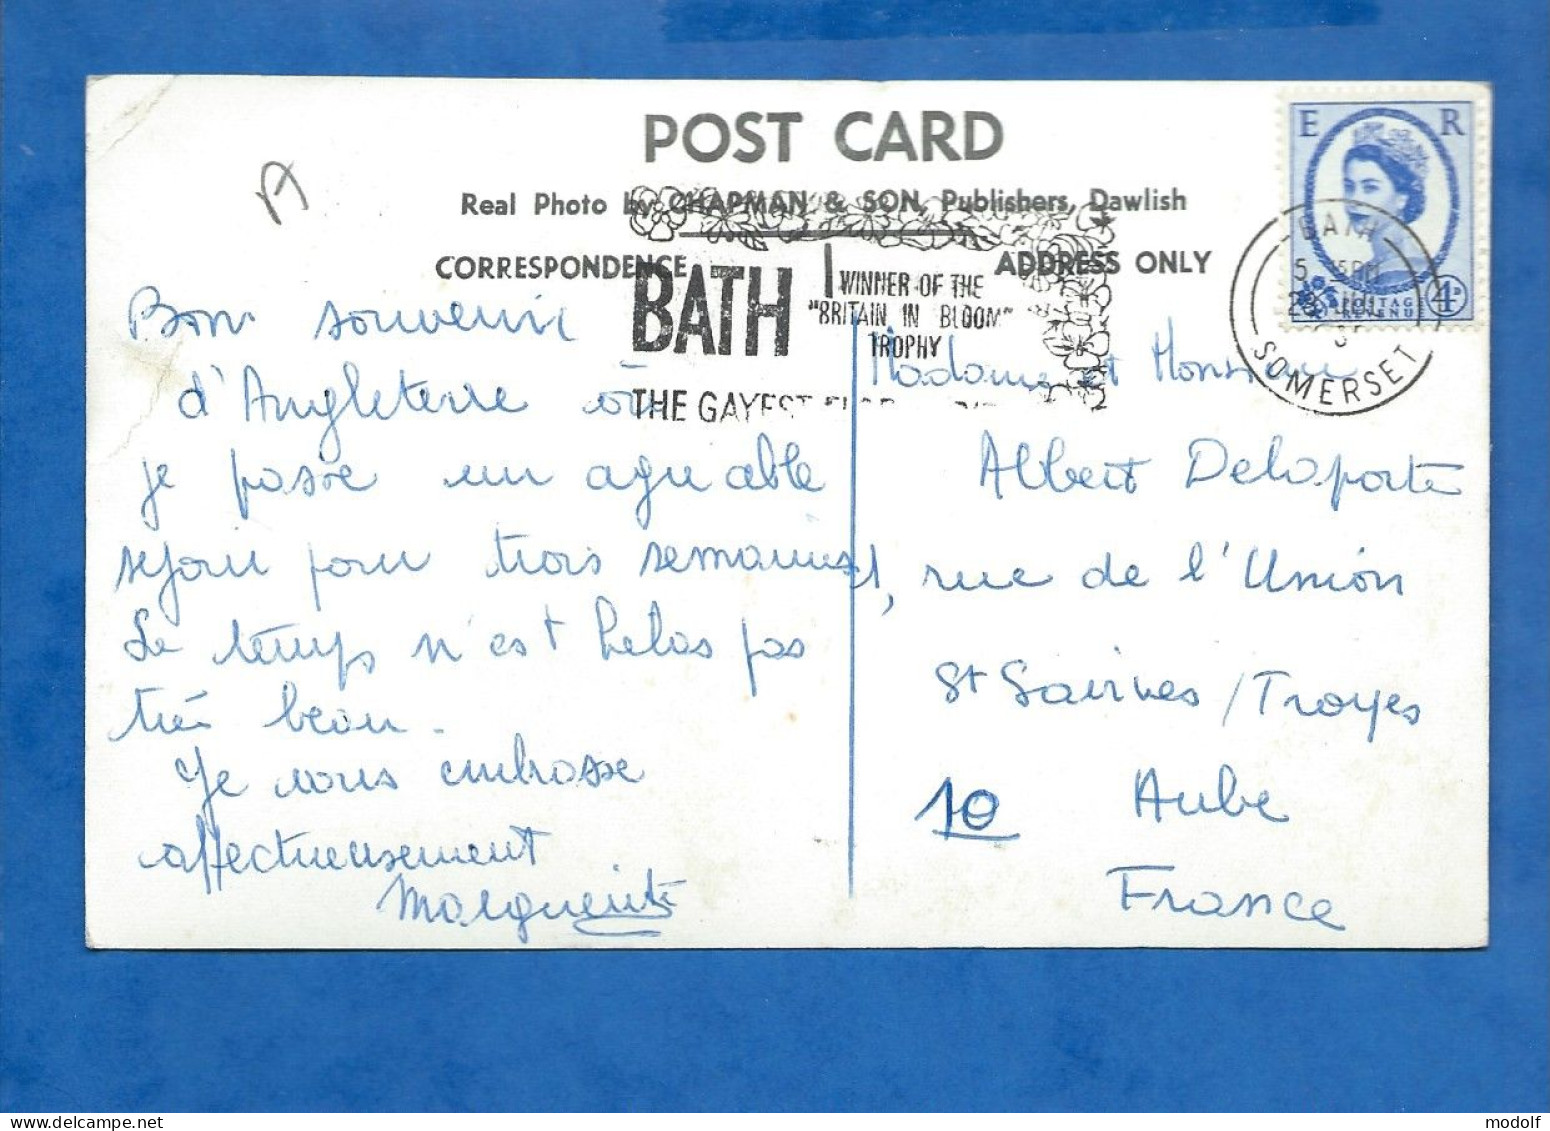 POST CARD
Real Photo by CHAPMAN & SON, Publishers, Dawlish
CORRESPONDENCE
ADDRESS ONLY
E R
POSTAGE
REVENUE
4D
BATH
SOMERSET
BATH
WINNER OF THE
"BRITAIN IN BLOOM"
TROPHY
THE GAYEST
Bon souvenir
d'Angleterre où
je passe un agréable
séjour pour trois semaines
Le temps n'est hélas pas
très beau.
Je vous embrasse
affectueusement
Marguerite
Madame et Monsieur
Albert Delaporte
1, rue de l'Union
St Savines / Troyes
10 Aube
France
modolf